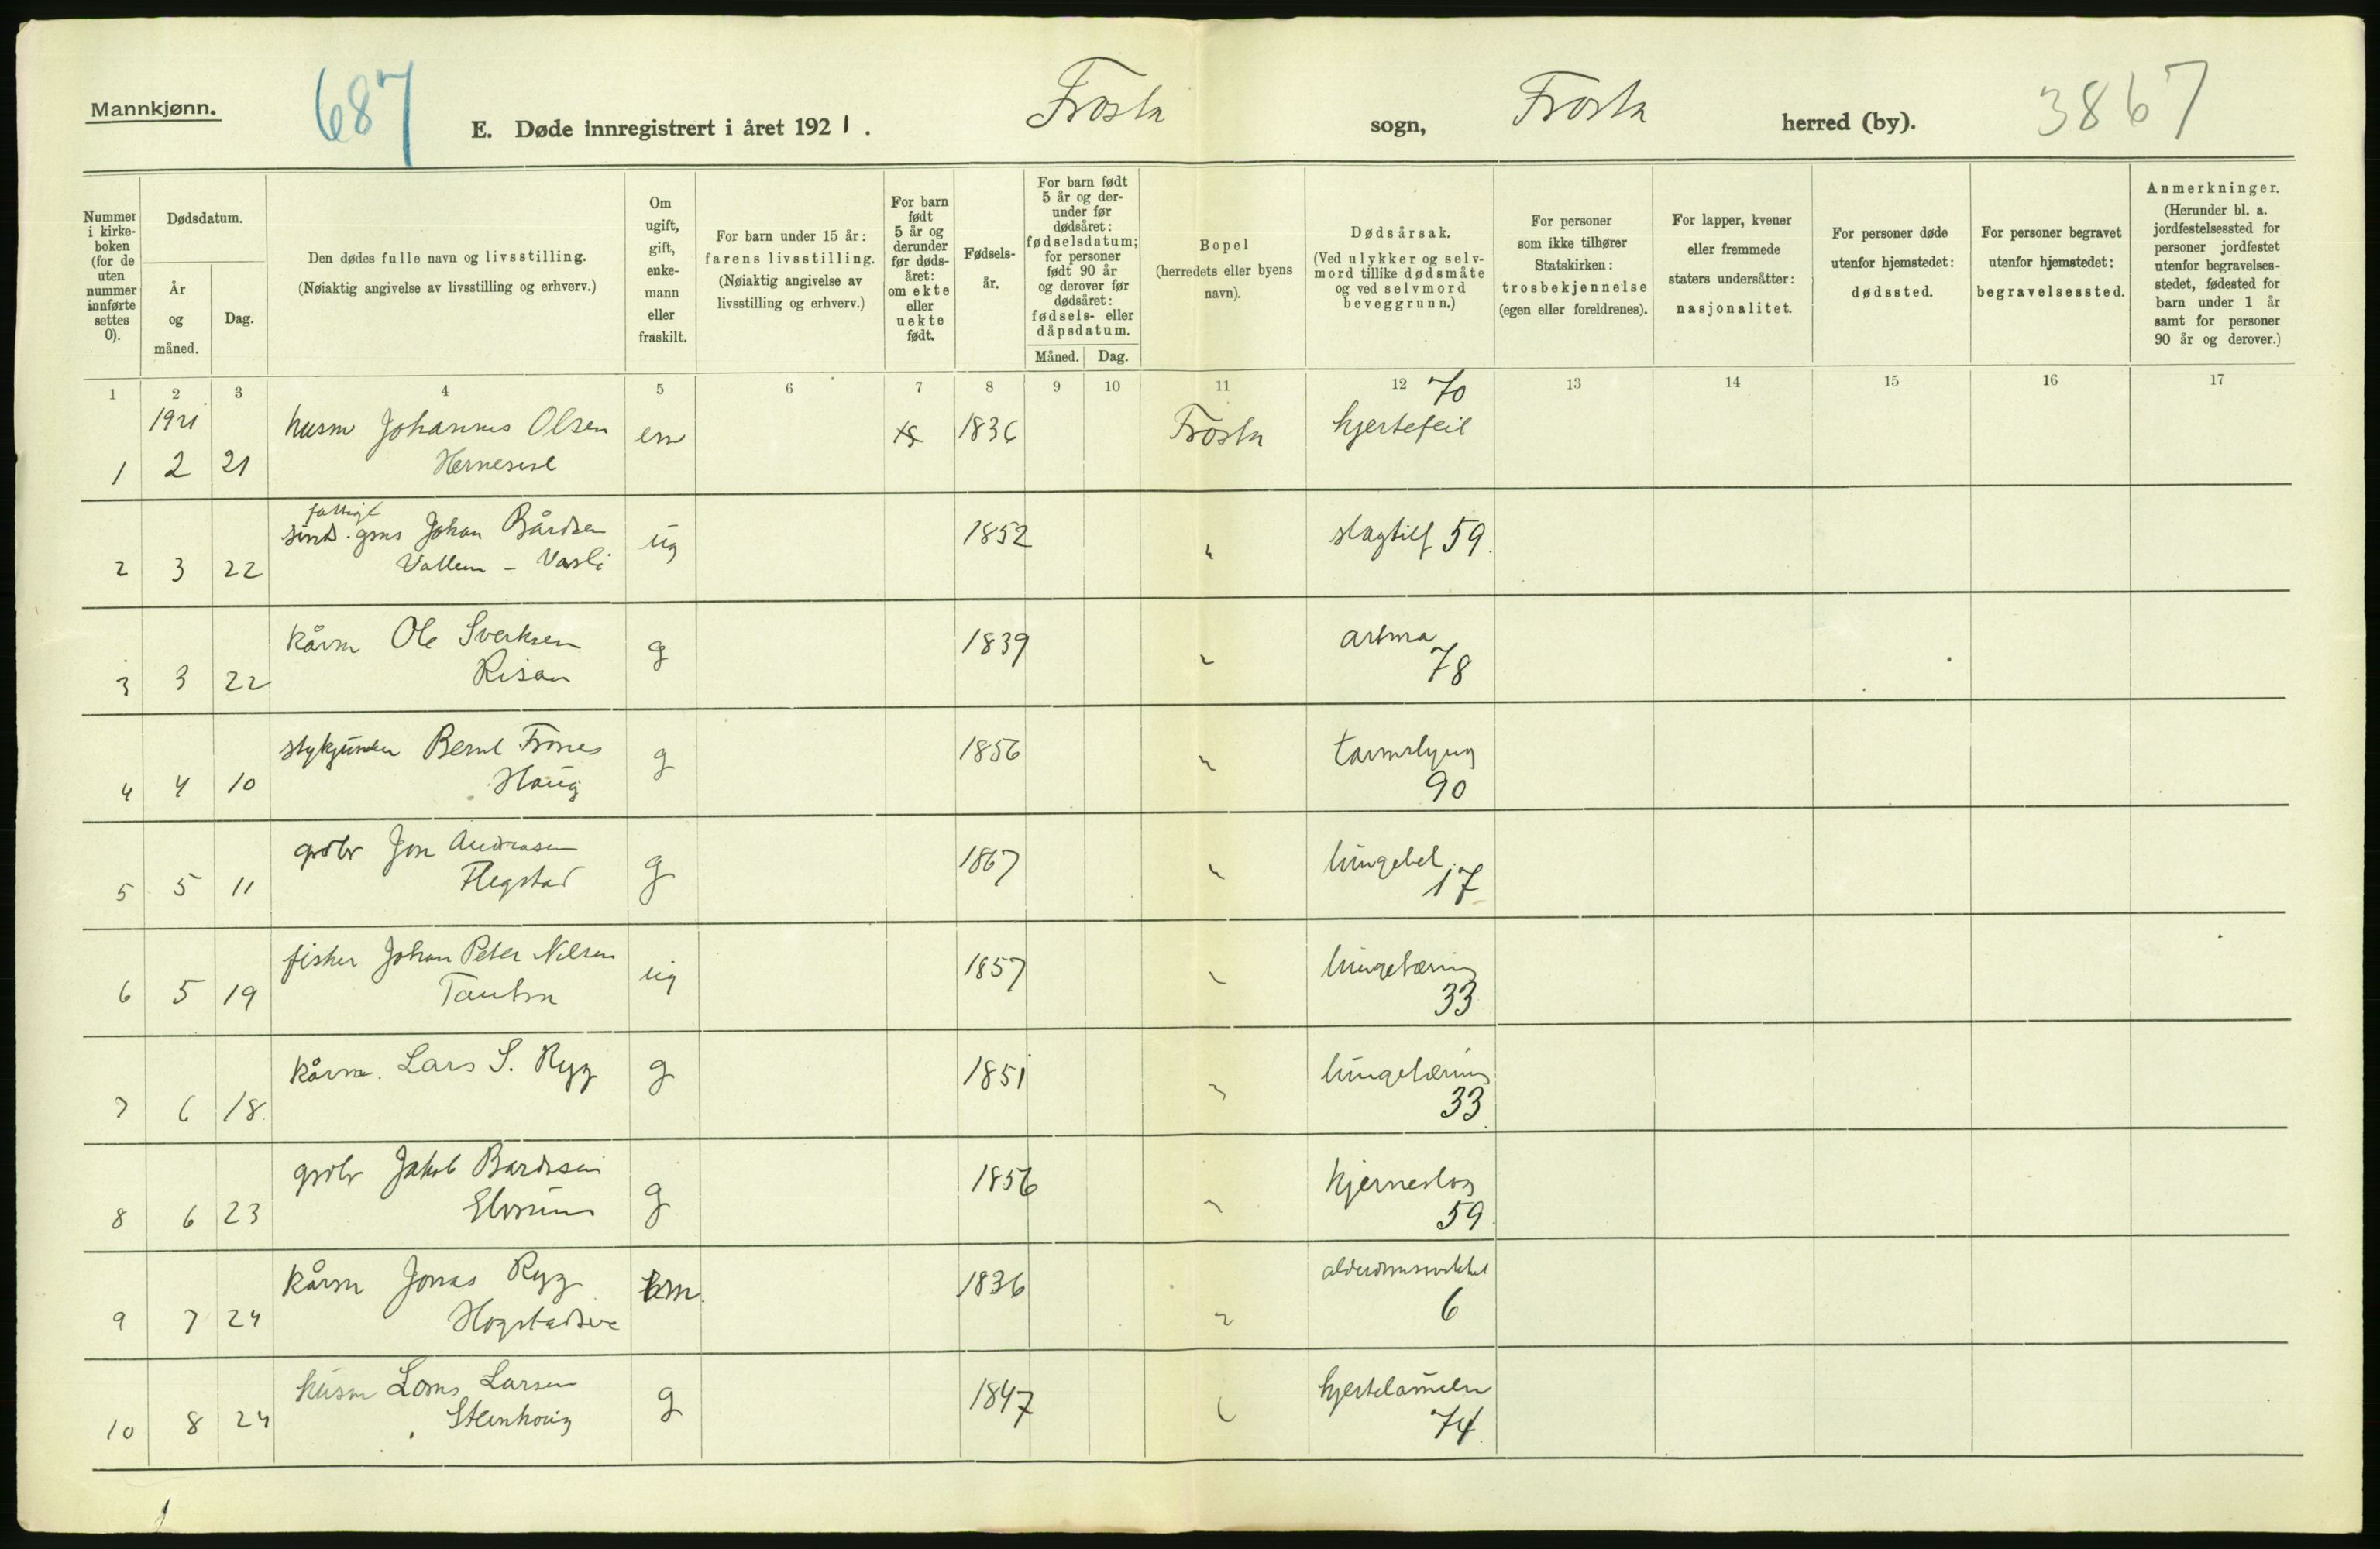 Mannkjønn.
687
E. Døde innregistrert i året 1921.
Frosta sogn, Frosta herred (by).
3867
Nummer i kirkeboken (for de uten nummer innførte settes 0).
Dødsdatum.
År og måned.
Dag.
Den dødes fulle navn og livsstilling.
(Nøiaktig angivelse av livsstilling og erhverv.)
Om ugift, gift, enkemann eller fraskilt.
For barn under 15 år: farens livsstilling.
(Nøiaktig angivelse av livsstilling og erhverv.)
For barn født 5 år og derunder før dødsåret: om ekte eller uekte født.
Fødselsår.
For barn født 5 år og derunder før dødsåret: fødselsdatum; for personer født 90 år og derover før dødsåret: fødsels- eller dåpsdatum.
Måned. Dag.
Bopel
(herredets eller byens navn).
Dødsårsak.
(Ved ulykker og selvmord tillike dødsmåte og ved selvmord beveggrunn.)
For personer som ikke tilhører Statskirken: trosbekjennelse (egen eller foreldrenes).
For lapper, kvener eller fremmede staters undersåtter: nasjonalitet.
For personer døde utenfor hjemstedet: dødssted.
For personer begravet utenfor hjemstedet: begravelsessted.
Anmerkninger.
(Herunder bl. a. jordfestelsessted for personer jordfestet utenfor begravelsesstedet, fødested for barn under 1 år samt for personer 90 år og derover.)
1 2 3 4 5 6 7 8 9 10 11 12 13 14 15 16 17
1921 husm Johannes Olsen em 1836 Frosta hjertefeil 70
1 2 21
Johan Bårdsen ug 1852 " 59
2 3 22 Vasli
kårm Ole g 1839 " astma
3 3 22 Risan 78
Bernt g 1856 " tarmslyng
4 4 10 Haug 90
grdbr Jon Andreasen g 1867 " lungebet.
5 5 11 Flegstad 17
fisker Johan Peter Nilsen ug 1857 " lungetæring
6 5 19 Tautra 33
kårm. Lars S. Ryg g 1851 " lungetæring
7 6 18 33
grdbr Jakob Bårdsen g 1856 " hjerneslag
8 6 23 59
kårm Jonas Ryg em. 1836 "
9 7 24 6
husm Larsen g 1847 " hjertelammelse
10 8 24 Steinhaug 74